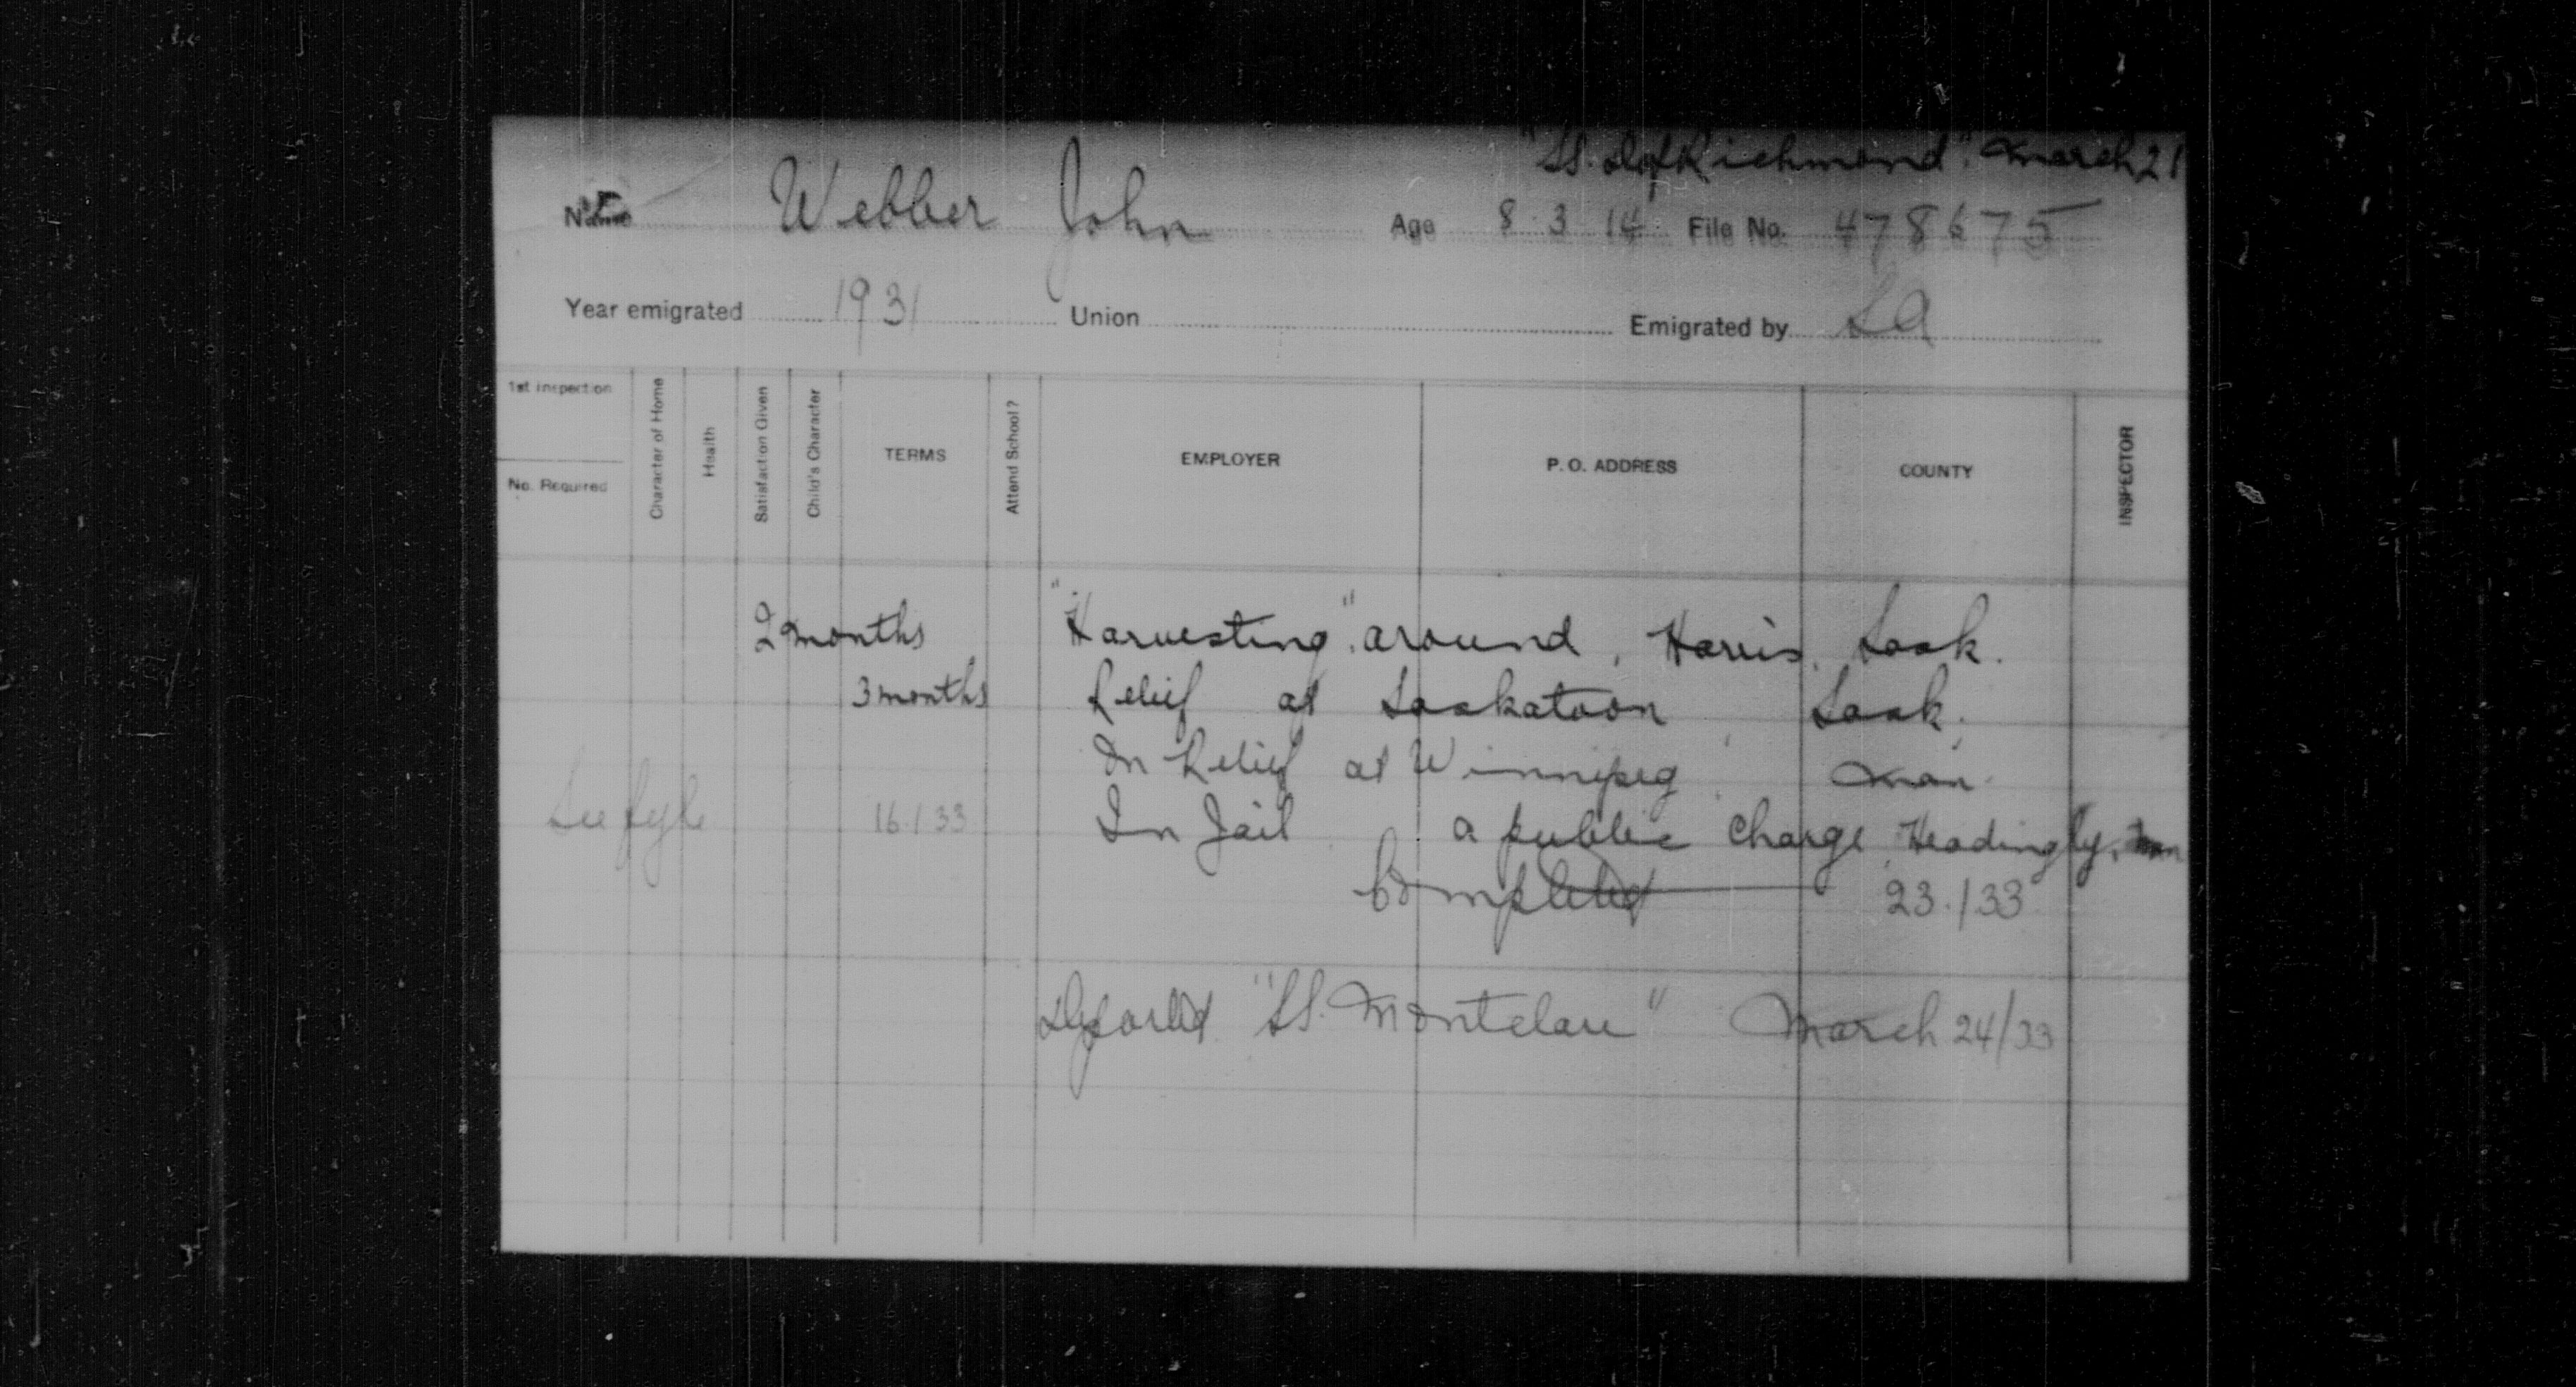 "SS. D of Richmond". March 21
Name Webber John Age 8.3.14 File No. 478675
Year emigrated 1931 Union Emigrated by SA
1st inspection
No. Required
Character of Home
Health
Satisfaction Given
Child's Character
TERMS
Attend School?
EMPLOYER
P. O. ADDRESS
COUNTY
INSPECTOR
2 months "Harvesting" around, Harris, Sask.
3 months Relief at Saskatoon Sask.
On Relief at Winnipeg Man.
See fyle 16.1.33 In Jail a public Charge, Headingly, Man
Completed 23.1.33
Deported "SS. Montclare" March 24/33